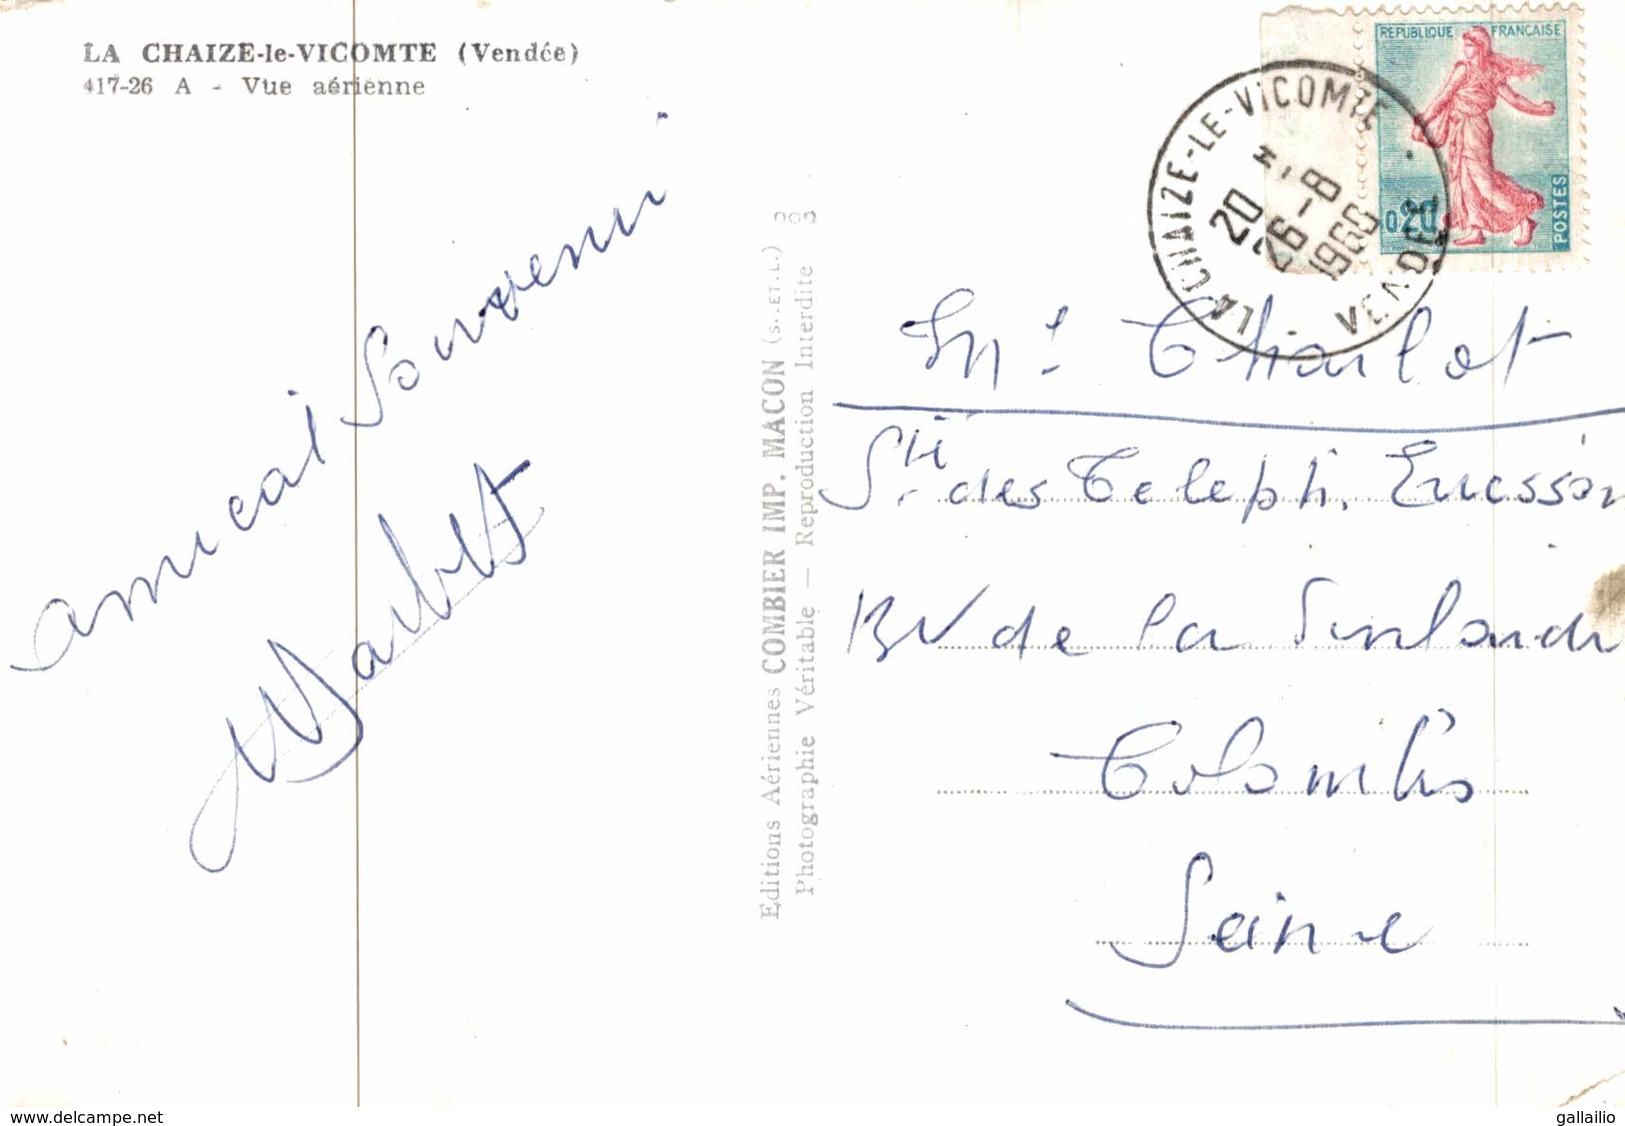 LA CHAIZE-le-VICOMTE (Vendée)
417-26 A - Vue aérienne
amical Souvenir
Editions Aériennes COMBIER IMP. MACON (S.-ET-L.)
Photographie Véritable — Reproduction Interdite
REPUBLIQUE FRANÇAISE
0,20
POSTES
LA CHAIZE-LE-VICOMTE
VENDEE
20 H
26-8
1960
Mr Charlot
Sté des Teleph. Ericsson
BV de la Finlande
Colombes
Seine
www.delcampe.net
gallailio